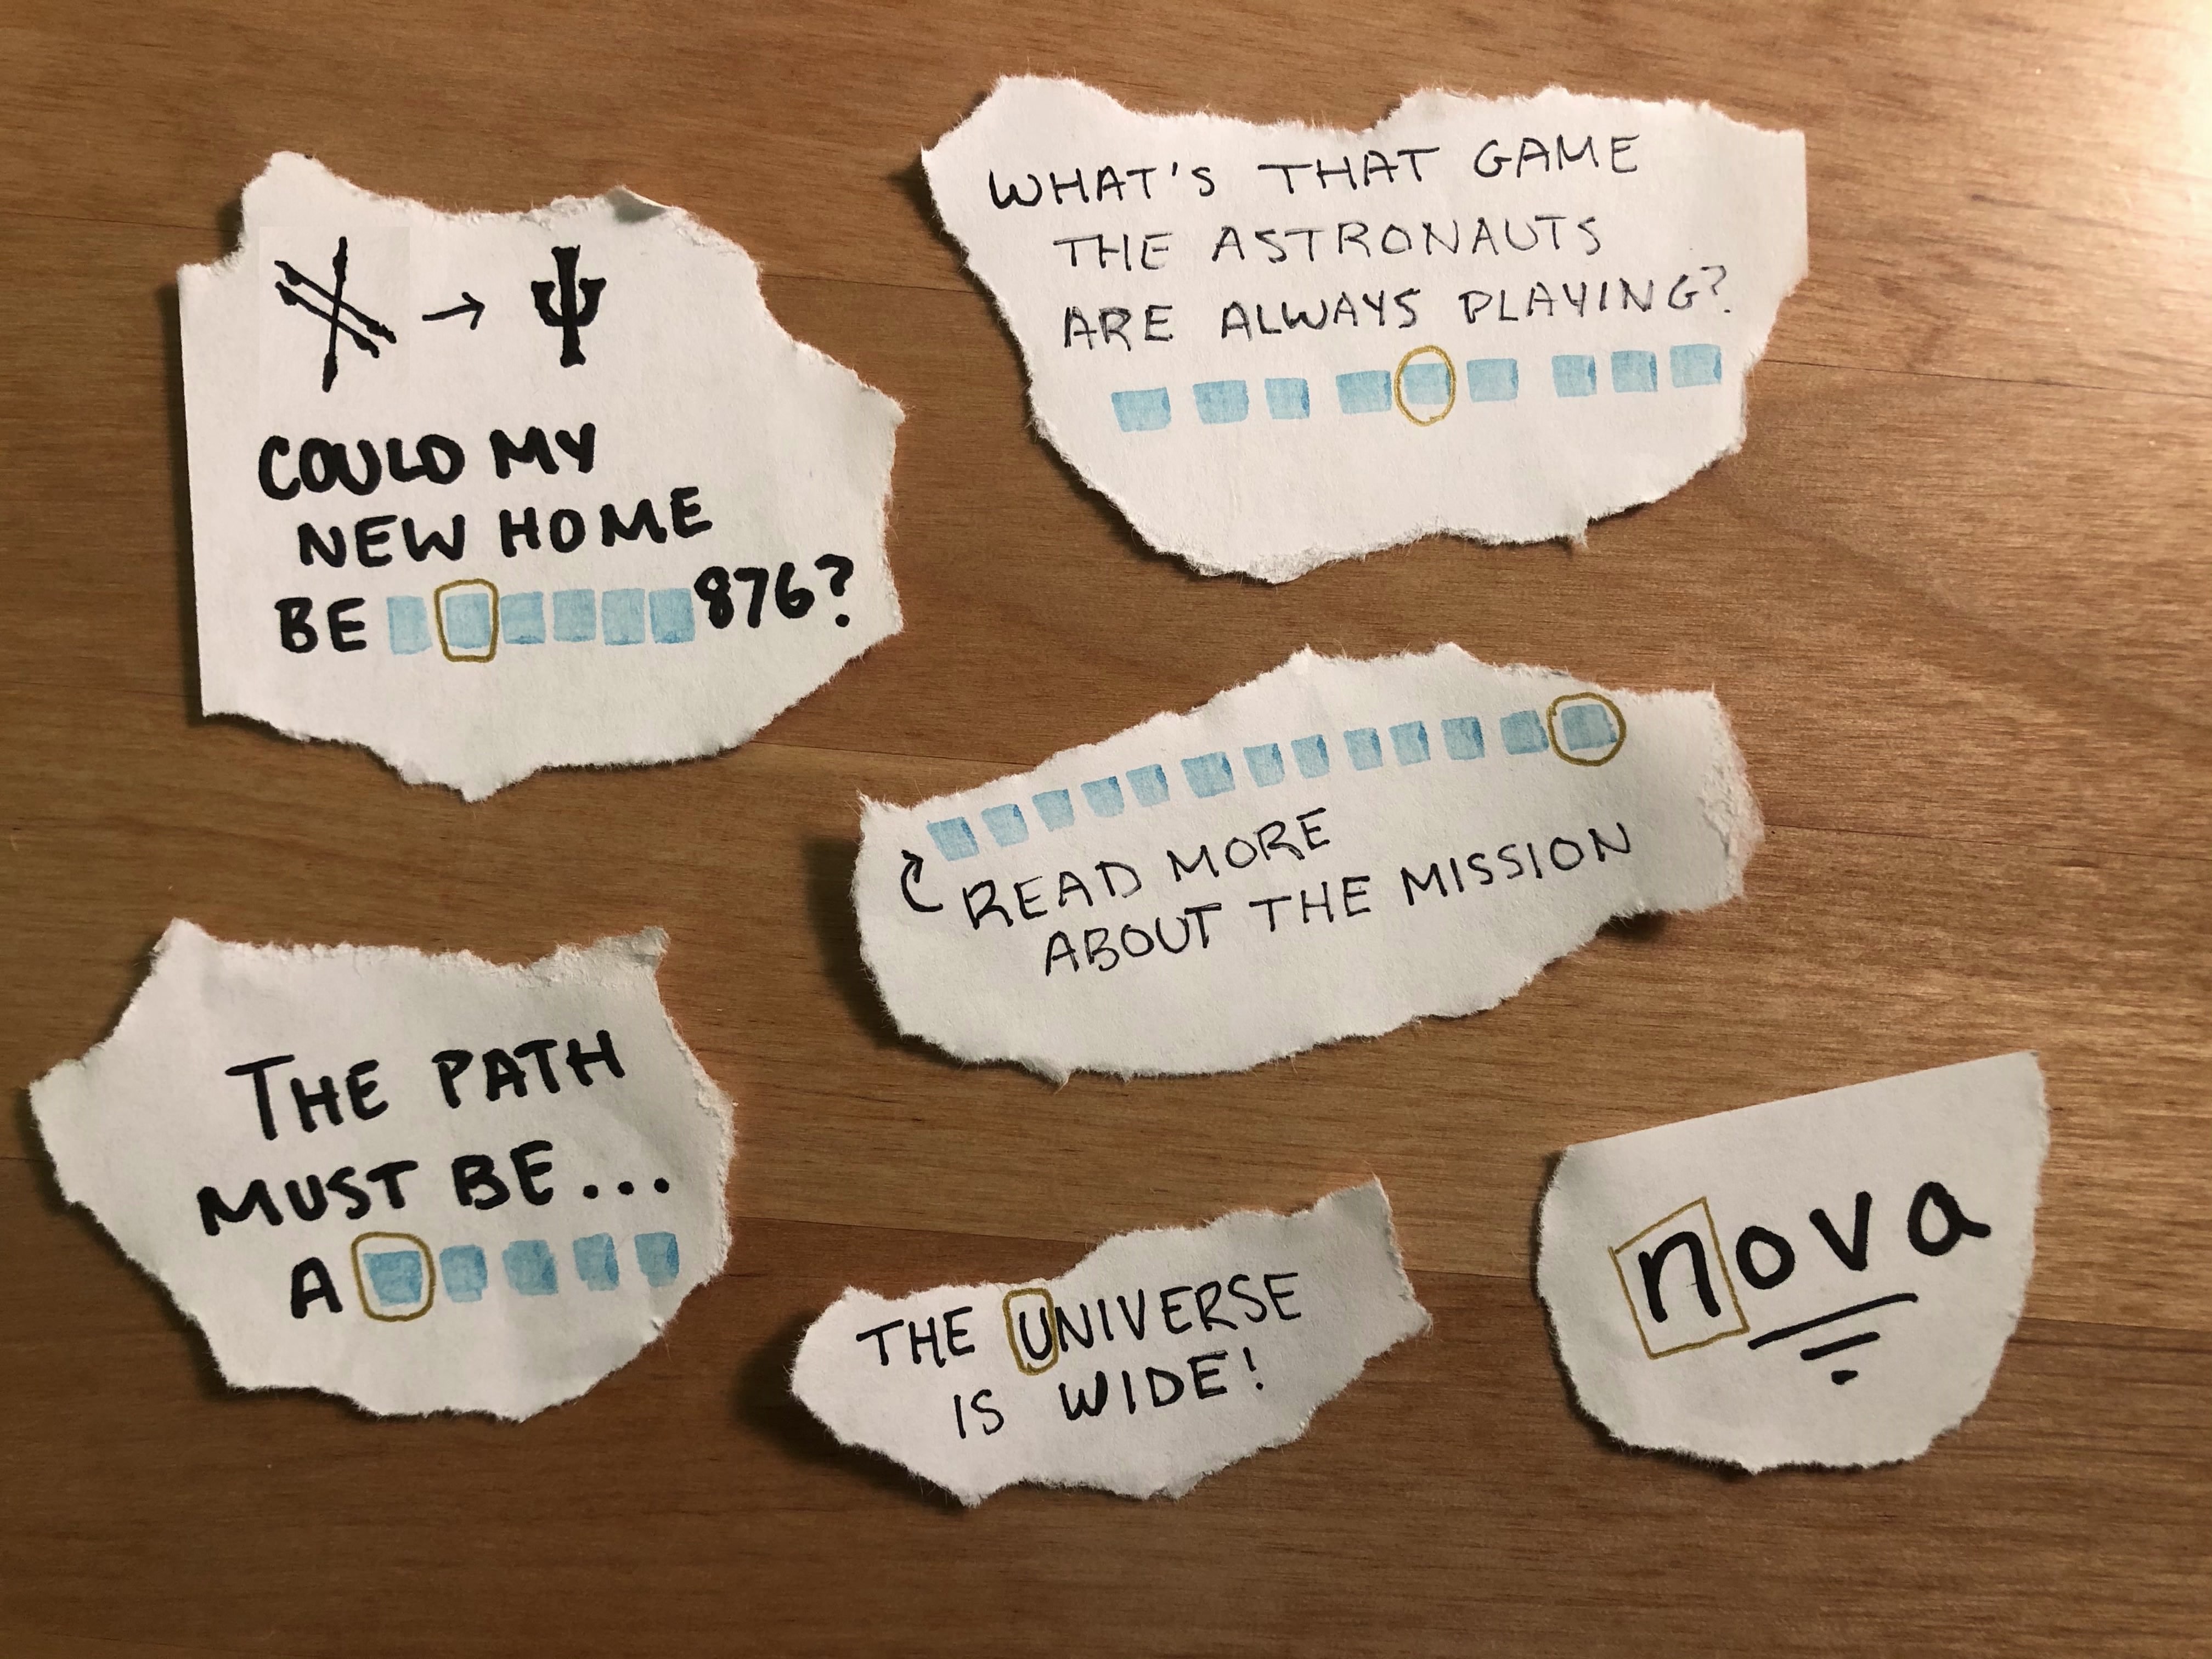 → ψ
COULD MY
NEW HOME
BE 876?
WHAT'S THAT GAME
THE ASTRONAUTS
ARE ALWAYS PLAYING?
READ MORE
ABOUT THE MISSION
THE PATH
MUST BE...
A
THE UNIVERSE
IS WIDE!
nova